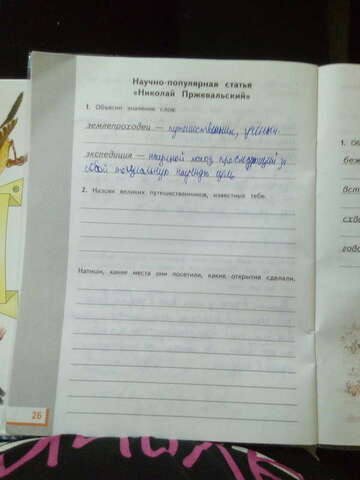 Научно-популярная статья
«Николай Пржевальский»
1. Объясни значение слов:
землепроходец — путешественник,
экспедиция — научной поход
свой
2. Назови великих путешественников, известных тебе.
Напиши, какие места они посетили, какие открытия сделали.
26
1. Об
беж
вст
схо
годо